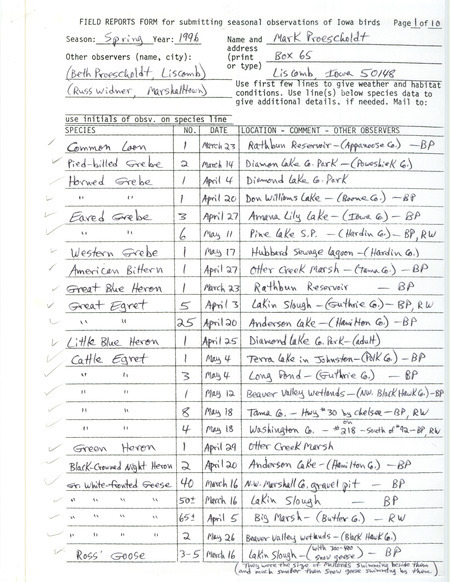 FIELD REPORTS FORM for submitting seasonal observations of Iowa birds Page 1 of 10
Season: Spring Year: 1996 Name and Mark Proescholdt
Other observers (name, city): address (print or type) Box 65
(Beth Proescholdt, Liscomb) Liscomb, Iowa 50148
(Russ Widner, Marshalltown) Use first few lines to give weather and habitat
conditions. Use line(s) below species data to
give additional details. if needed. Mail to:
use initials of obsv. on species line
SPECIES NO. DATE LOCATION - COMMENT - OTHER OBSERVERS
Common Loon 1 March 23 Rathbun Reservoir - (Appanoose Co.) - BP
Pied-billed Grebe 2 March 14 Diamond Lake Co. Park - (Poweshiek Co.)
Horned Grebe 1 April 4 Diamond Lake Co. Park
" " 1 April 20 Don Williams Lake - (Boone Co.) - BP
Eared Grebe 3 April 27 Amana Lily Lake - (Iowa Co.) - BP
6 May 11 Pine Lake S.P. - (Hardin Co.) - BP, RW
Western Grebe 1 May 17 Hubbard Sewage Lagoon - (Hardin Co.)
American Bittern 1 April 27 Otter Creek Marsh - (Tama Co.) - BP
Great Blue Heron 1 March 23 Rathbun Reservoir - BP
Great Egret 5 April 3 Lakin Slough - (Guthrie Co.) - BP, RW
" " 25 April 20 Anderson Lake - (Hamilton Co.) - BP
Little Blue Heron 1 April 25 Diamond Lake Co. Park - (adult)
Cattle Egret 1 May 4 Terra Lake in Johnston - (Polk Co.) - BP
" " 3 May 4 Long Pond - (Guthrie Co.) - BP
" " 1 May 12 Beaver Valley Wetlands - (NW. Black Hawk Co.) - BP
" " 8 May 18 Tama Co. - Hwy #30 by Chelsea - BP, RW
" " 4 May 18 Washington Co. - on #218 - south of #92 - BP, RW
Green Heron 1 April 29 Otter Creek Marsh
Black-Crowned Night Heron 2 April 20 Anderson Lake - (Hamilton Co.) - BP
Gr. White-fronted Geese 40 March 16 N.W. Marshall Co. gravel pit - BP
" " " " 50± March 16 Lakin Slough - BP
" " " " 65± April 5 Big Marsh - (Butler Co.) - RW
" " " " 2 May 26 Beaver Valley Wetlands - (Black Hawk Co.)
Ross' Goose 3-5 March 16 Lakin Slough - (with snow geese) - BP
(They were the size of Mallards swimming beside them
and much smaller than snow geese swimming by them.)